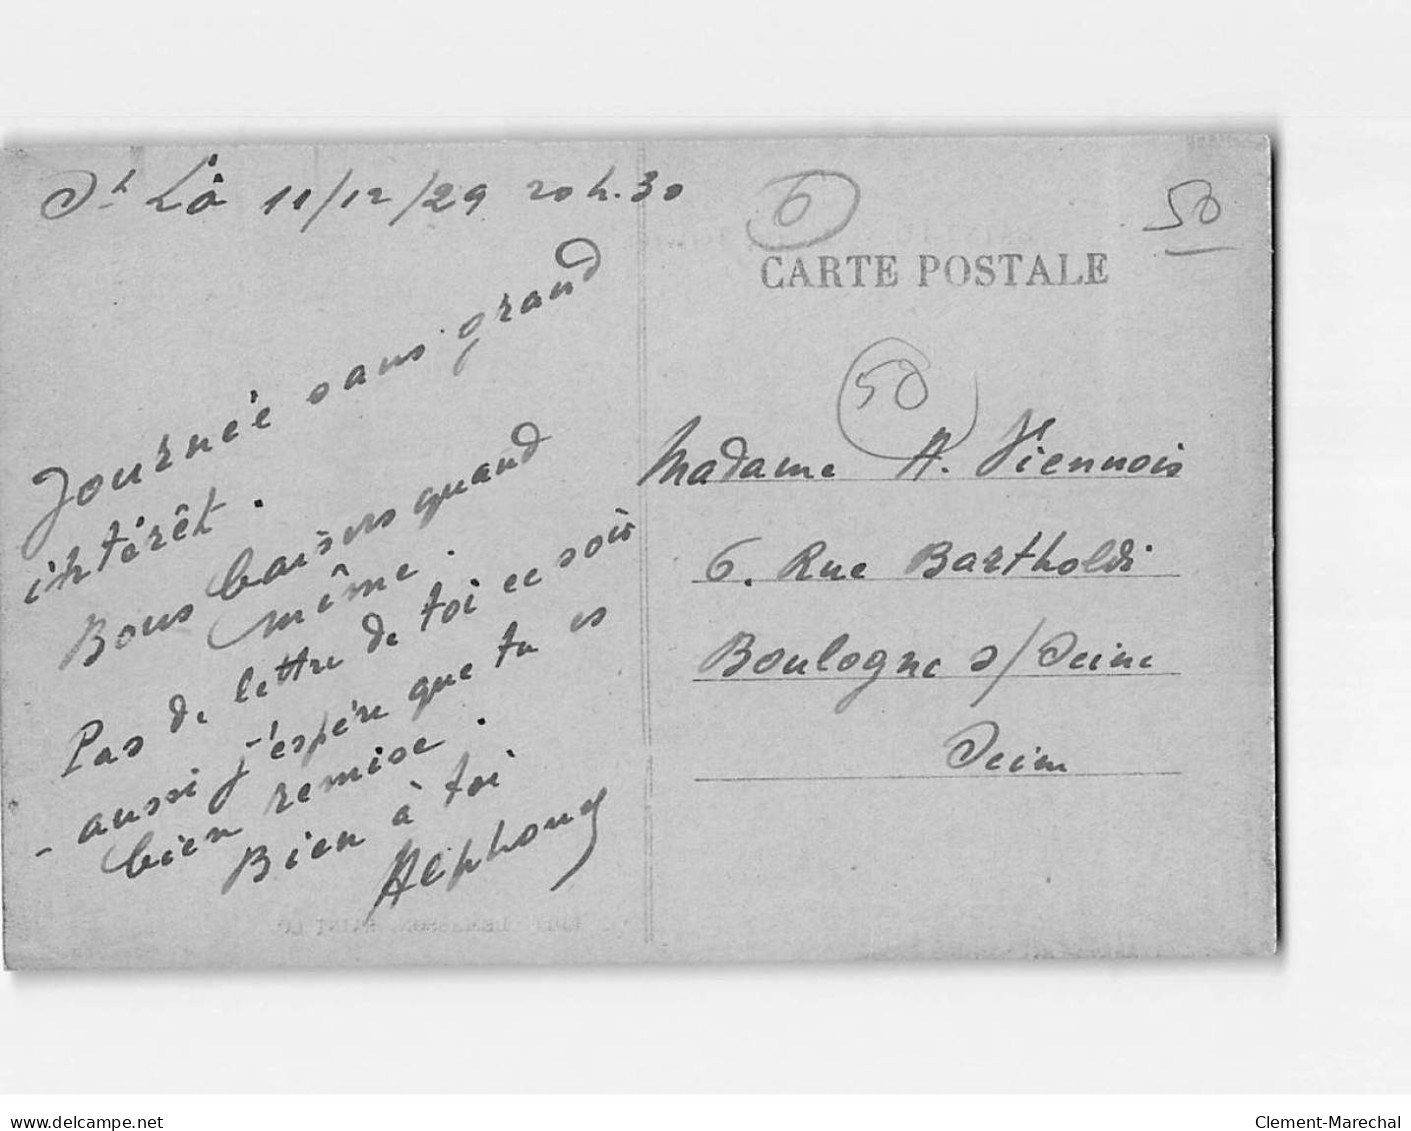 St Lô 11/12/29 20h.30
Journée sans grand
intérêt.
Bons baisers quand
même.
Pas de lettre de toi ce soir
- aussi j'espère que tu es
bien remise.
Bien à toi
Alphonse
6
50
CARTE POSTALE
50
Madame A. Viennois
6. Rue Bartholdi
Boulogne s/ Seine
Seine
www.delcampe.net
Clement-Marechal